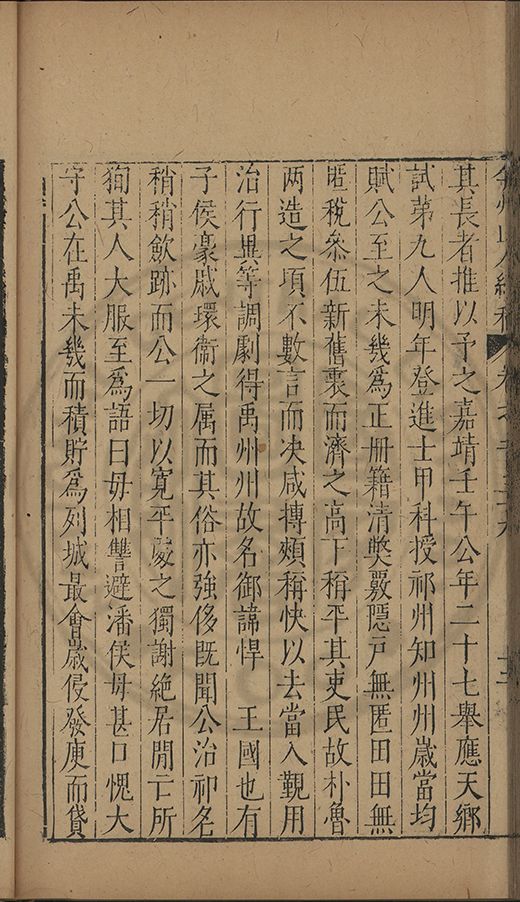 其長者推以予之嘉靖壬午公年二十七舉應天鄉
試第九人明年登進士甲科授祁州知州州歲當均
賦公至之未幾爲正册籍清獘覈隱戸無匿田田無
匿稅叅伍新舊裒而濟之高下稱平其吏民故朴魯
两造之頃不數言而决咸摶頰稱快以去當入覲用
治行異等調劇得禹州州故名御諱悍　王國也有
子侯豪戚環衞之属而其俗亦強侈既聞公治祁名
稍稍歛跡而公一切以寬平處之獨謝絶居閒亡所
狥其人大服至爲語曰毋相讐避潘侯毋甚口愧大
守公在禹未幾而積貯爲列城最會歲侵發庾而貸